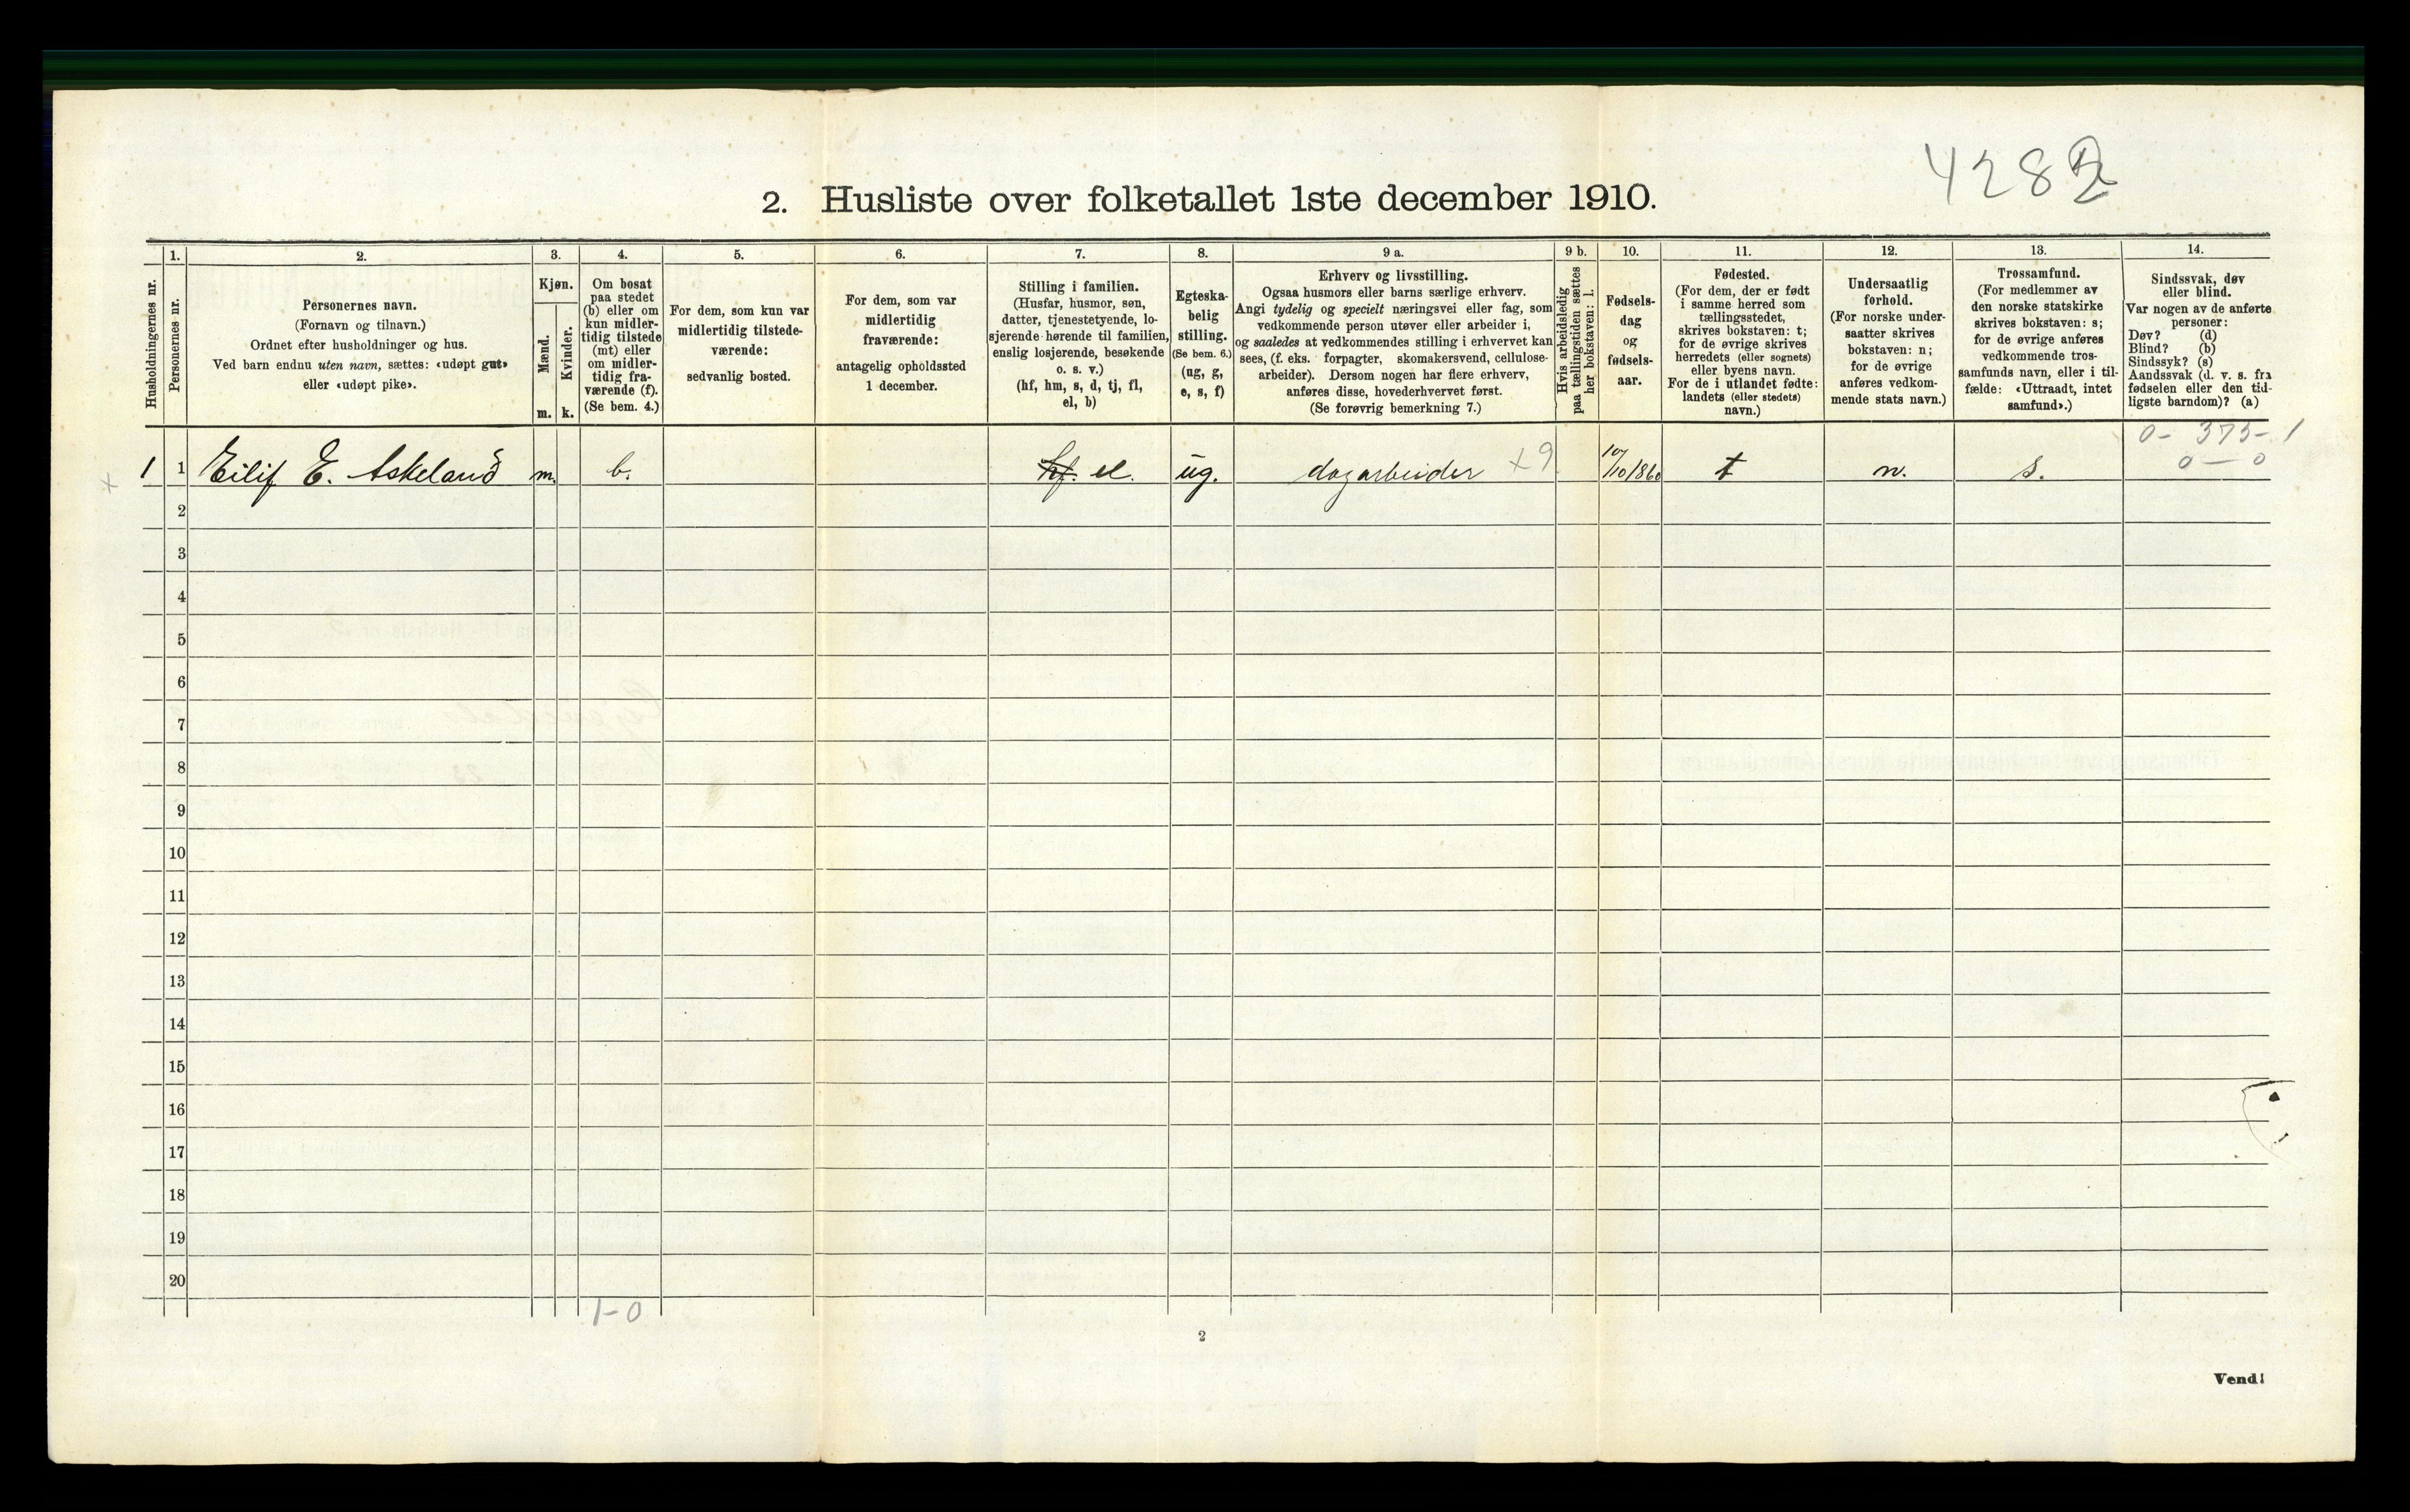 4282
2. Husliste over folketallet 1ste december 1910.
Husholdningernes nr.
1.
Personernes nr.
2.
Personernes navn.
(Fornavn og tilnavn.)
Ordnet efter husholdninger og hus.
Ved barn endnu uten navn, sættes: «udøpt gut»
eller «udøpt pike».
3.
Kjøn.
Mænd.
Kvinder.
m. k.
4.
Om bosat
paa stedet
(b) eller om
kun midler-
tidig tilstede
(mt) eller
om midler-
tidig fra-
værende (f).
(Se bem. 4.)
5.
For dem, som kun var
midlertidig tilstede-
værende:
sedvanlig bosted.
6.
For dem, som var
midlertidig
fraværende:
antagelig opholdssted
1 december.
7.
Stilling i familien.
(Husfar, husmor, søn,
datter, tjenestetyende, lo-
sjerende hørende til familien,
enslig losjerende, besøkende
o. s. v.)
(hf, hm, s, d, tj, fl,
el, b)
8.
Egteska-
belig
stilling.
(Se bem. 6.)
(ug, g,
e, s, f)
9 a.
Erhverv og livsstilling.
Ogsaa husmors eller barns særlige erhverv.
Angi tydelig og specielt næringsvei eller fag, som
vedkommende person utøver eller arbeider i,
og saaledes at vedkommendes stilling i erhvervet kan
sees, (f. eks. forpagter, skomakersvend, cellulose-
arbeider). Dersom nogen har flere erhverv,
anføres disse, hovederhvervet først.
(Se forøvrig bemerkning 7.)
9 b.
Hvis arbeidsledig
paa tællingstiden sættes
her bokstaven: l.
10.
Fødsels-
dag
og
fødsels-
aar.
11.
Fødested.
(For dem, der er født
i samme herred som
tællingsstedet,
skrives bokstaven: t;
for de øvrige skrives
herredets (eller sognets)
eller byens navn.
For de i utlandet fødte:
landets (eller stedets)
navn.)
12.
Undersaatlig
forhold.
(For norske under-
saatter skrives
bokstaven: n;
for de øvrige
anføres vedkom-
mende stats navn.)
13.
Trossamfund.
(For medlemmer av
den norske statskirke
skrives bokstaven: s;
for de øvrige anføres
vedkommende tros-
samfunds navn, eller i til-
fælde: «Uttraadt, intet
samfund».)
14.
Sindssvak, døv
eller blind.
Var nogen av de anførte
personer:
Døv? (d)
Blind? (b)
Sindssyk? (s)
Aandssvak (d. v. s. fra
fødselen eller den tid-
ligste barndom)? (a)
0 - 375 - 1
0 — 0
x 1 1 Eilif E. Askeland m. b. hf. el. ug. dagarbeider x9 10/10 1860 t n. s.
2
3
4
5
6
7
8
9
10
11
12
13
14
15
16
17
18
19
20
1-0
2
Vend!